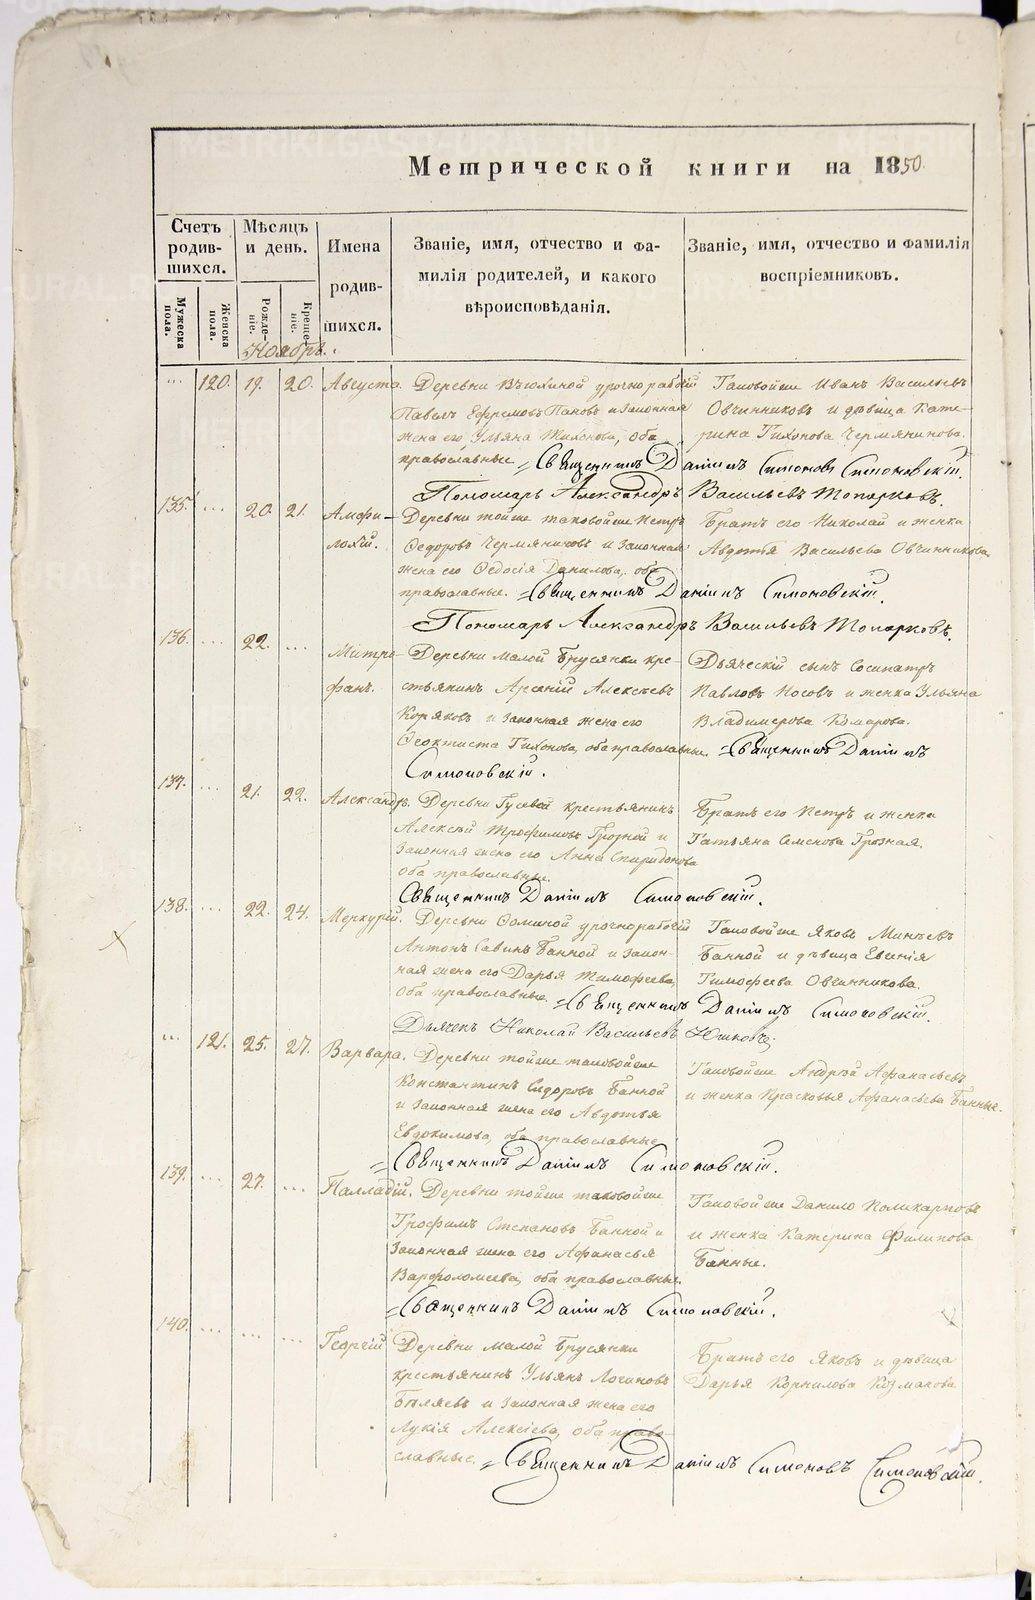 Метрической книги на 1850.
Счетъ родив-шихся.
Мѣсяцъ и день.
Имена родив-шихся.
Званіе, имя, отчество и фа-милія родителей, и какого вѣроисповѣданія.
Званіе, имя, отчество и фамилія воспріемниковъ.
Мужеска пола.
Женска пола.
Рожде-ніе.
Креще-ніе.
Ноябрь.
... 120. 19. 20. Августа.
Деревни урочноработій
Павелъ Ефремовъ Пановъ и законная
жена его Ульяна Тихонова, оба
православные = Священникъ Даніилъ Симоновъ Симоновскій.
Таковой же Иванъ Васильевъ
Овчинниковъ и дѣвица Кате-
рина Тихонова Чермянинова.
Пономарь Александръ Васильевъ Топорковъ.
135. ... 20. 21. Амфи-
лохій.
Деревни тойже таковойже Петръ
Ѳедоровъ Чермяниновъ и законная
жена его Ѳедосія Данилова, оба
православные. = Священникъ Даніилъ Симоновскій.
Братъ его Николай и женка
Авдотья Васильева Овчинникова.
Пономарь Александръ Васильевъ Топорковъ.
136. ... 22. ... Митро-
фанъ.
Деревни Малой Брусянки кре-
стьянинъ Арсеній Алексѣевъ
Коряковъ и законная жена его
Ѳеоктиста Тихонова, оба православные. = Священникъ Даніилъ
Симоновскій.
Дьяческій сынъ Сосипатръ
Павловъ Носовъ и женка Ульяна
Владимерова Комарова.
137. ... 21. 22. Александръ.
Деревни Гусевой крестьянинъ
Алексѣй Трофимовъ Грозной и
законная жена его Анна Спиридонова
оба православные.
Братъ его Петръ и женка
Татьяна Семенова Грозная.
Священникъ Даніилъ Симоновскій.
138. ... 22. 24. Меркурій.
Деревни урочноработій
Антонъ Савинъ Банной и закон-
ная жена его Дарья Тимофеева,
оба православные. = Священникъ Даніилъ Симоновскій.
Таковойже Яковъ Минѣевъ
Банной и дѣвица Евгенія
Тимофеева Овчинникова.
Дьячекъ Николай Васильевъ
... 121. 25. 27. Варвара.
Деревни тойже таковойже
Константинъ Сидоровъ Банной
и законная жена его Авдотья
Евдокимова, оба православные
Таковойже Андрей Афанасьевъ
и женка Прасковья Афанасьева Банные.
= Священникъ Даніилъ Симоновскій.
139. ... 27. ... Палладій.
Деревни тойже таковойже
Трофимъ Степановъ Банной и
законная жена его Афанасья
Варфоломеева, оба православные.
Таковойже Данило Поликарповъ
и женка Катерина Филипова
Банные.
= Священникъ Даніилъ Симоновскій.
140. ... ... ... Георгій
Деревни Малой Брусянки
крестьянинъ Ульянъ Логиновъ
Бѣляевъ и законная жена его
Лукія Алексѣева, оба право-
славные. = Священникъ Даніилъ Симоновъ Симоновскій.
Братъ его Яковъ и дѣвица
Дарья Корнилова Козмакова